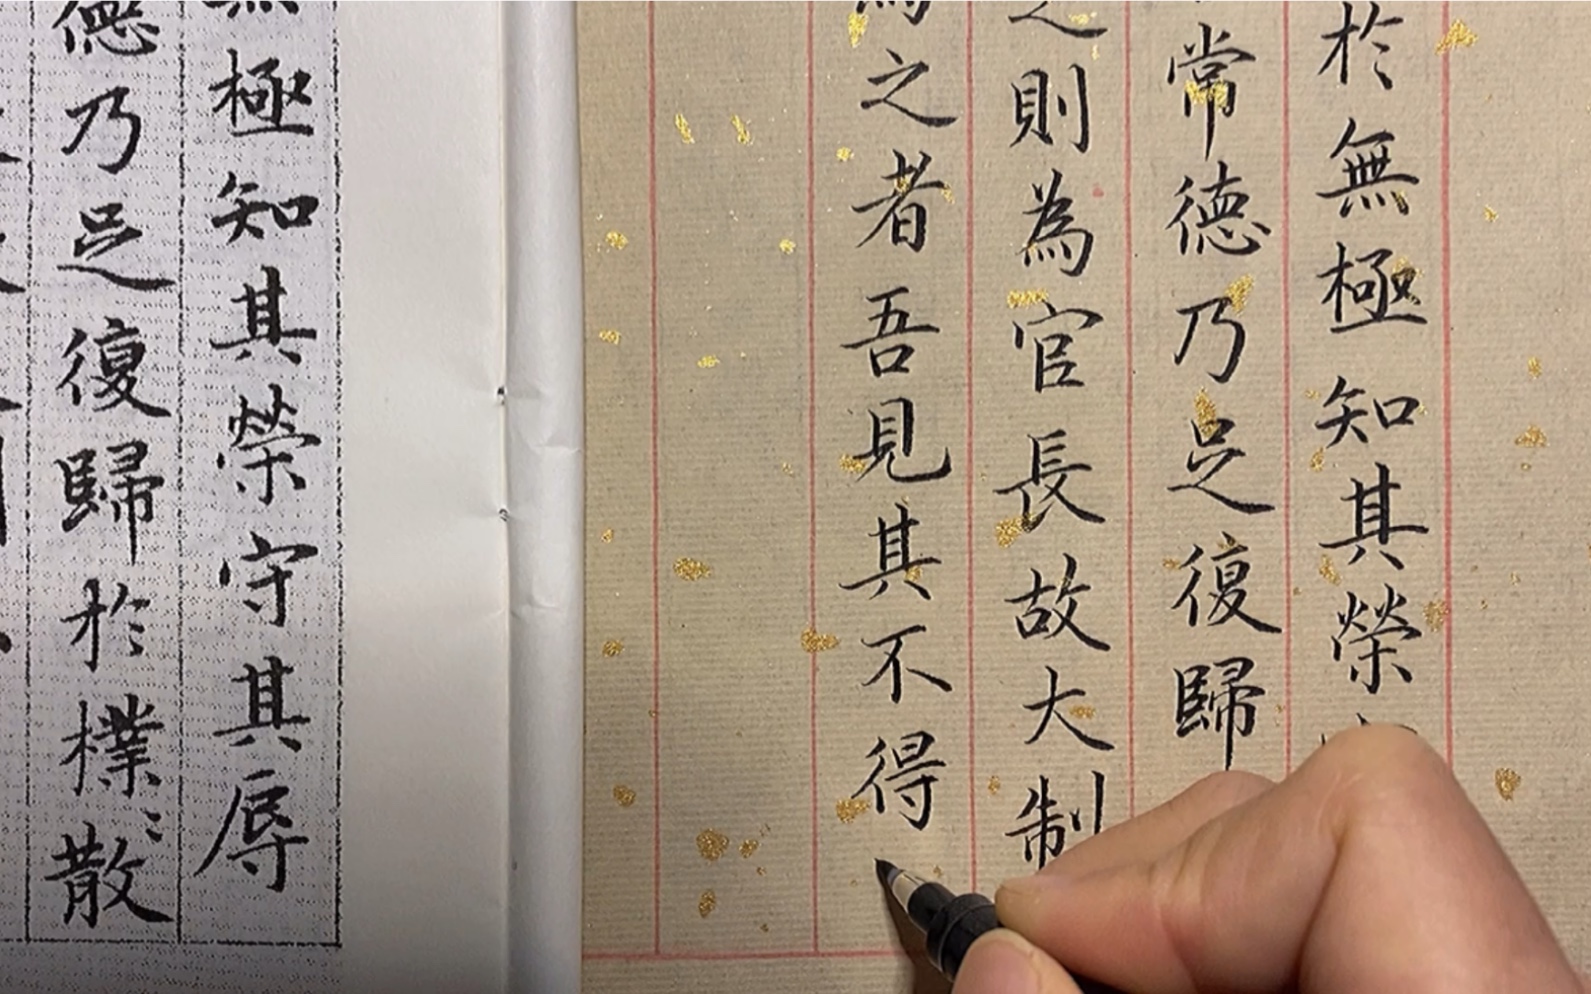 於無極知其榮
常德乃足復歸
之則為官長故大制
為之者吾見其不得
無極知其榮守其辱
德乃足復歸於樸〻散